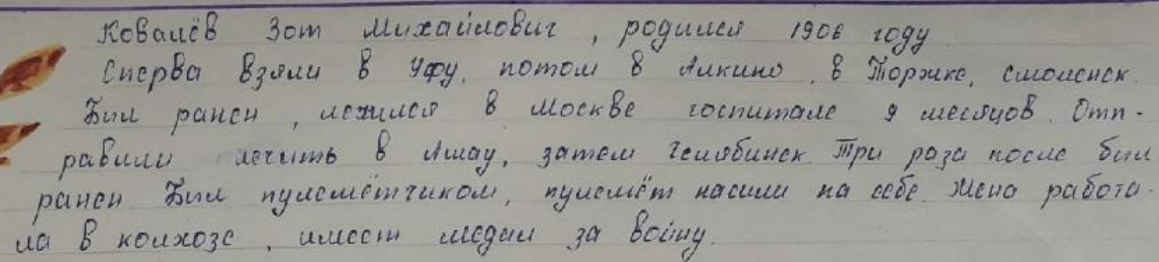 Ковалёв Зот Михайлович, родился 1906 году
Сперва взяли в Уфу, потом в Алкино, в Торжке, Смоленск.
Был ранен, лежился в Москве госпитале 9 месяцов. Отп-
равили лечить в Ашау, затем Челябинск Три раза после был
ранен Был пулемётчиком, пулемёт насили на себе. Жена работа-
ла в колхозе, имеет медали за войну.